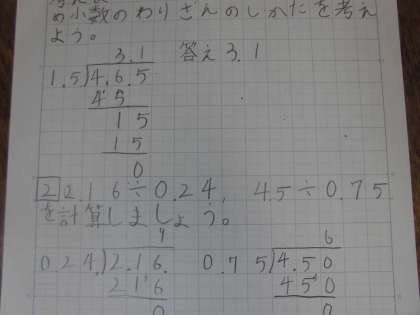 め小数のわりざんのしかたを考え
よう。
3.1 答え3.1
1.5)4.6.5
4 5
1 5
1 5
0
2 2.16÷0.24, 4.5÷0.75
を計算しましょう。
9 6
0.24.)2.16. 0.75)4.50
2 1 6 4 5 0
0 0